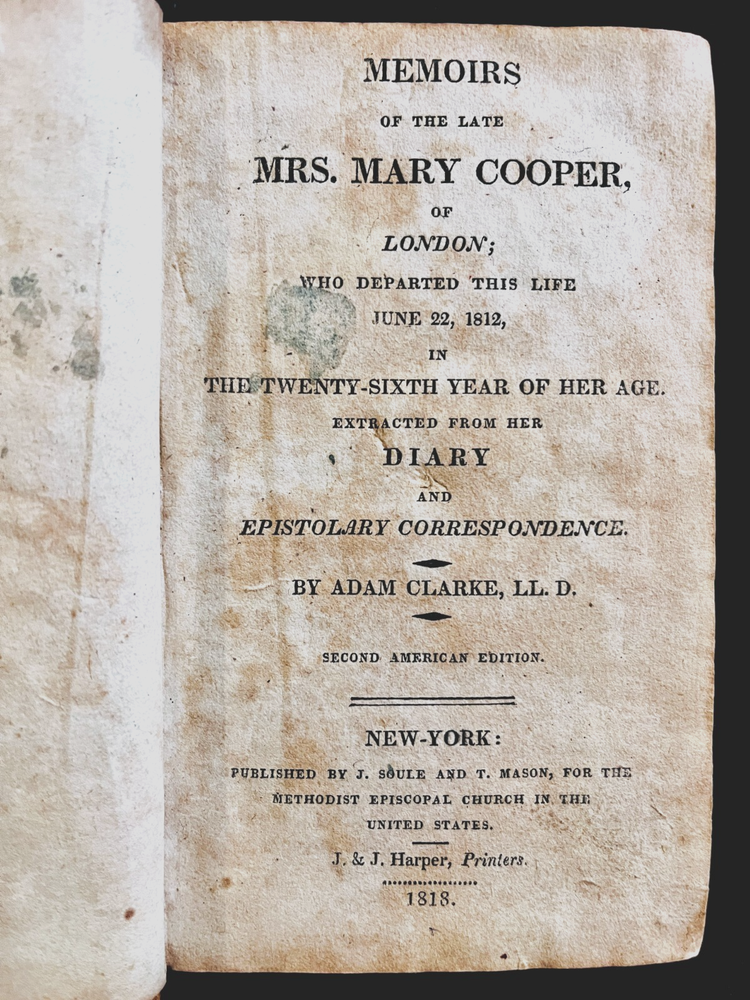 MEMOIRS
OF THE LATE
MRS. MARY COOPER,
OF
LONDON;
WHO DEPARTED THIS LIFE
JUNE 22, 1812,
IN
THE TWENTY-SIXTH YEAR OF HER AGE.
EXTRACTED FROM HER
DIARY
AND
EPISTOLARY CORRESPONDENCE.
BY ADAM CLARKE, LL. D.
SECOND AMERICAN EDITION.
NEW-YORK:
PUBLISHED BY J. SOULE AND T. MASON, FOR THE
METHODIST EPISCOPAL CHURCH IN THE
UNITED STATES.
J. & J. Harper, Printers.
1818.